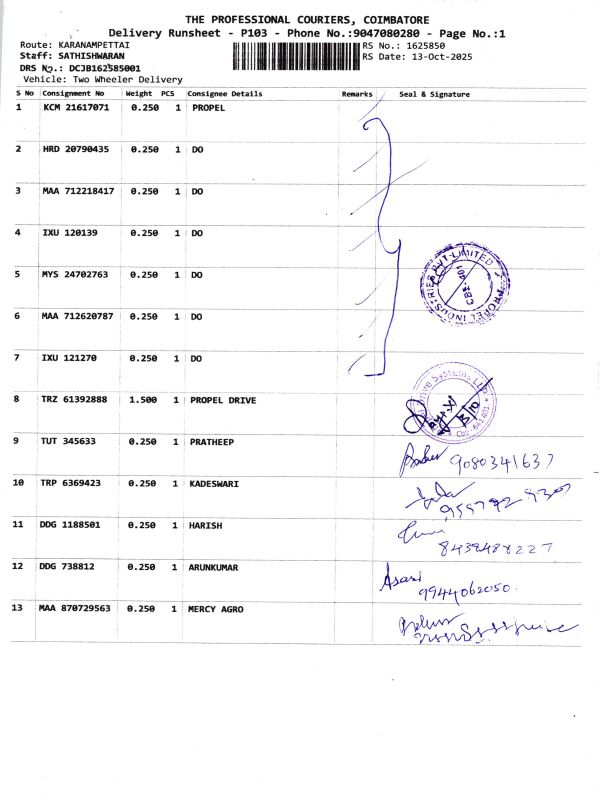 THE PROFESSIONAL COURIERS, COIMBATORE
Delivery Runsheet - P103 - Phone No.:9047080280 - Page No.:1
Route: KARANAMPETTAI RS No.: 1625850
Staff: SATHISHWARAN RS Date: 13-Oct-2025
DRS No.: DCJB162585001
Vehicle: Two Wheeler Delivery
S No Consignment No Weight PCS Consignee Details Remarks Seal & Signature
1 KCM 21617071 0.250 1 PROPEL
2 HRD 20790435 0.250 1 DO
3 MAA 712218417 0.250 1 DO
4 IXU 120139 0.250 1 DO
5 MYS 24702763 0.250 1 DO
6 MAA 712620787 0.250 1 DO
7 IXU 121270 0.250 1 DO
PROPEL INDUSTRIES PVT LIMITED
8 TRZ 61392888 1.500 1 PROPEL DRIVE
Drive Systems LLP
9 TUT 345633 0.250 1 PRATHEEP
9080341637
10 TRP 6369423 0.250 1 KADESWARI
11 DDG 1188501 0.250 1 HARISH
8438488227
12 DDG 738812 0.250 1 ARUNKUMAR
9944062050
13 MAA 870729563 0.250 1 MERCY AGRO